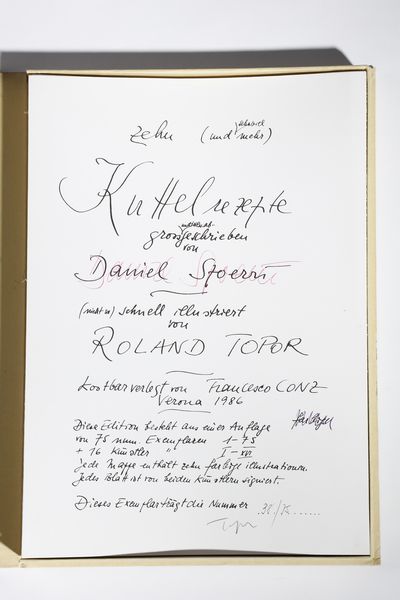 zehn (und mehr)
Kuttelrezepte
grossgeschrieben
von
Daniel Spoerri
(nicht zu) schnell illustriert
von
ROLAND TOPOR
kostbar verlegt von Francesco CONZ
Verona 1986
Diese Edition besteht aus einer Auflage
von 75 num. Exemplaren 1-75
+ 16 Künstler " I - XVI
Jede Mappe enthält zehn farbige illustrationen.
Jedes Blatt ist von beiden Künstlern signiert.
Dieses Exemplar trägt die Nummer 38/75......
Topor